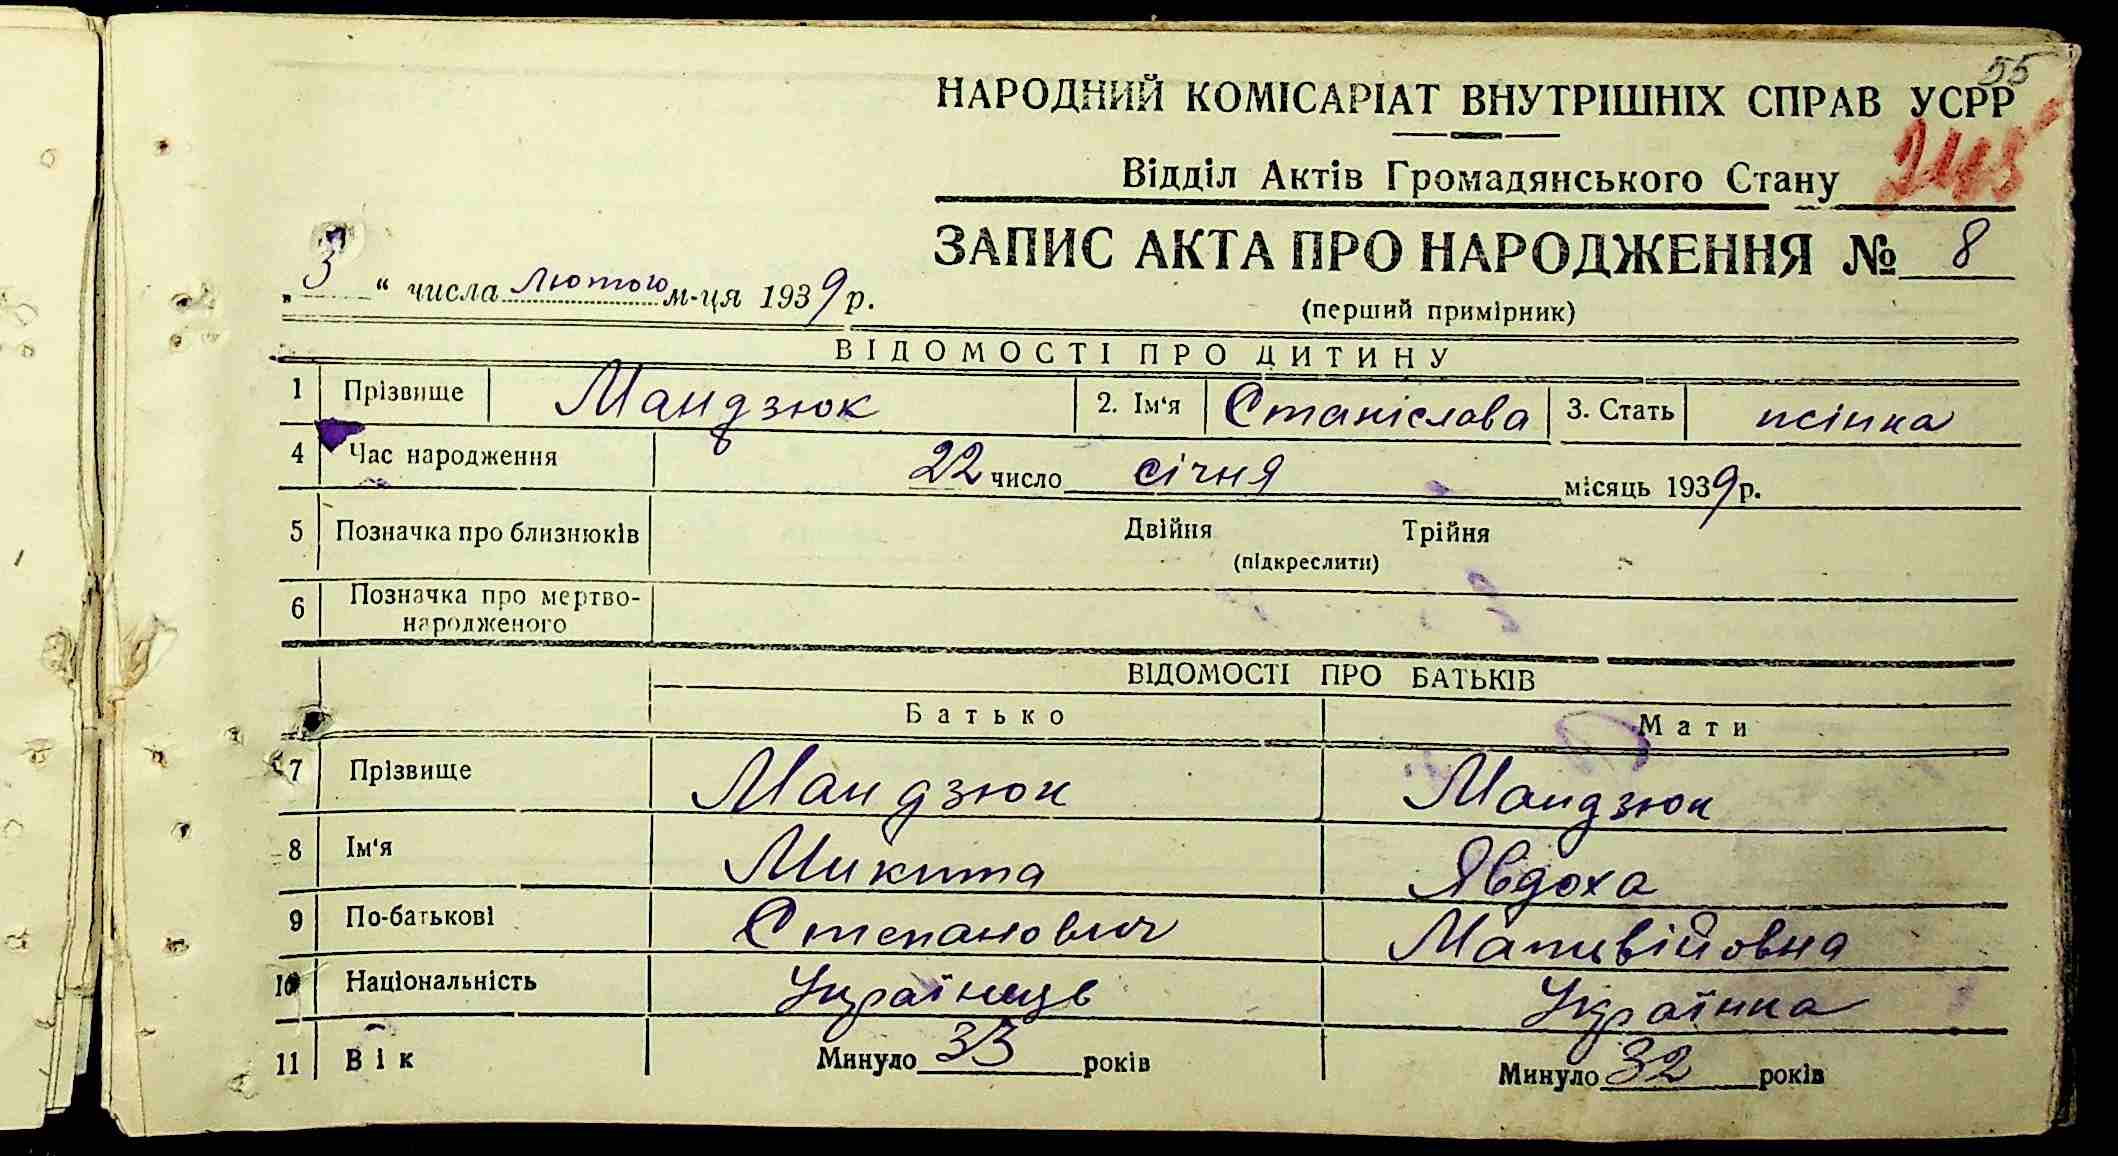 55
НАРОДНИЙ КОМІСАРІАТ ВНУТРІШНІХ СПРАВ УСРР
Відділ Актів Громадянського Стану
ЗАПИС АКТА ПРО НАРОДЖЕННЯ № 8
„3“ числа лютого м-ця 1939 р.
(перший примірник)
ВІДОМОСТІ ПРО ДИТИНУ
1 Прізвище Мандзюк 2. Ім'я Станіслава 3. Стать жінка
4 Час народження 22 число січня місяць 1939 р.
5 Позначка про близнюків Двійня Трійня
(підкреслити)
6 Позначка про мертво-
народженого
ВІДОМОСТІ ПРО БАТЬКІВ
Батько Мати
7 Прізвище Мандзюк Мандзюк
8 Ім'я Микита Явдоха
9 По-батькові Степанович Матвійовна
10 Національність Українець Українка
11 Вік Минуло 33 років Минуло 32 років